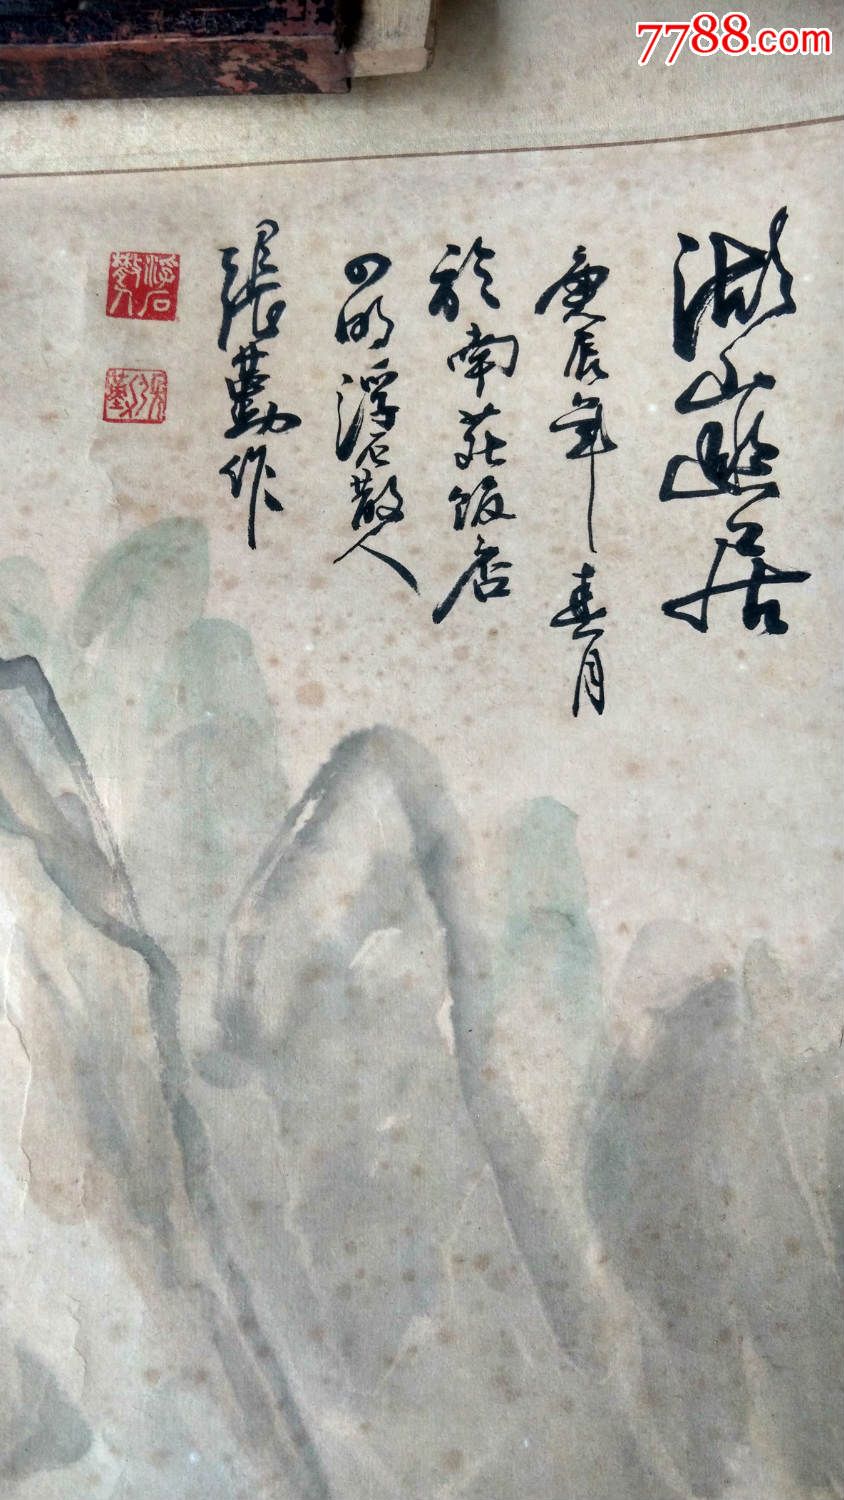 7788.com
湖山逸居
庚辰年春月
於南莊飯店
四明浮石散人
張勤作
浮石
散人
張
勤